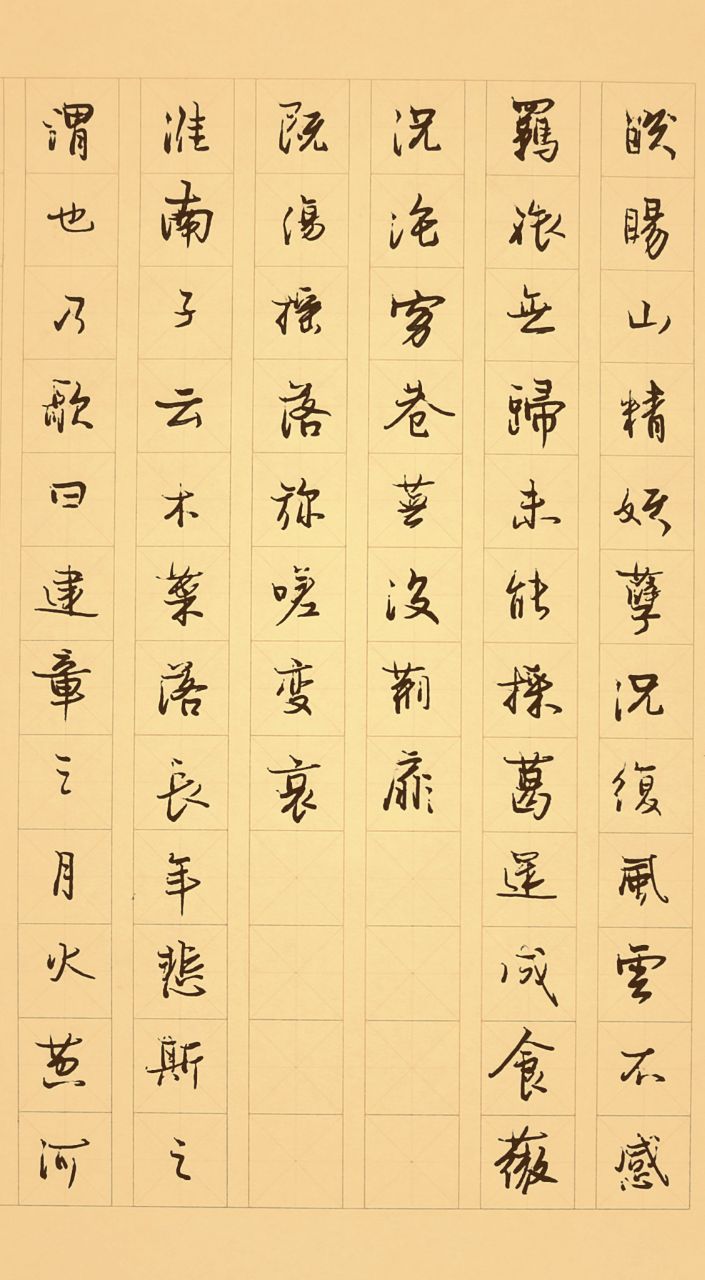 睒睗山精妖孽況復風雲不感
羈旅無歸未能採葛還成食薇
況沌窮巷蕪沒荊扉
既傷搖落彌嗟变衰
淮南子云木葉落長年悲斯之
謂也乃歌曰建章三月火黃河